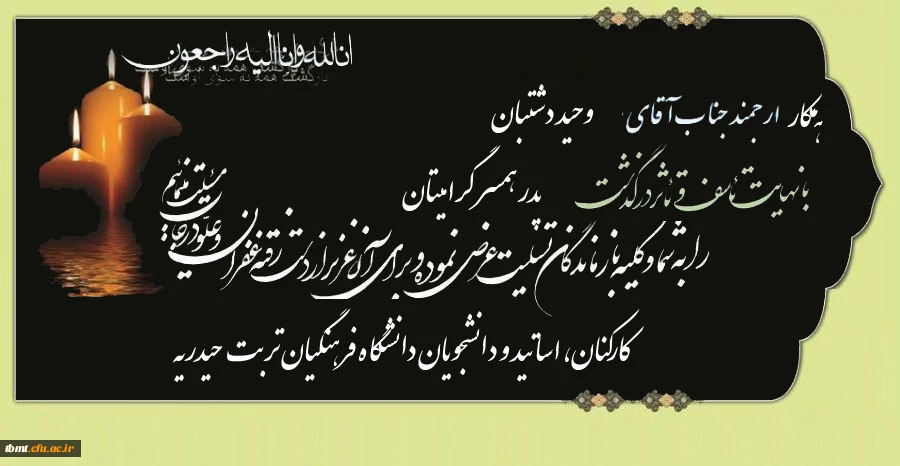 انا لله و انا الیه راجعون
بازگشت همه به سوی اوست
همکار ارجمند جناب آقای وحید دشتبان
با نهایت تاسف و تاثر درگذشت پدر همسر گرامیتان
را به شما و کلیه بازماندگان تسلیت عرض نموده و برای آن عزیز از دست رفته غفران و علو درجات
مسئلت می نمائیم
کارکنان، اساتید و دانشجویان دانشگاه فرهنگیان تربت حیدریه
tbmt.cfu.ac.ir